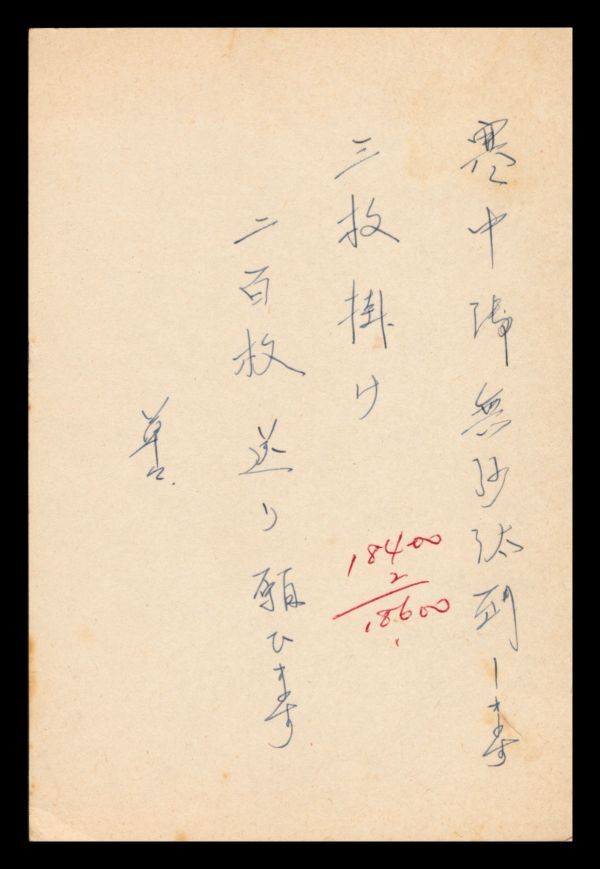 寒中御無沙汰致します
三枚掛け
二百枚送り願ひます
善
18400
2
18600